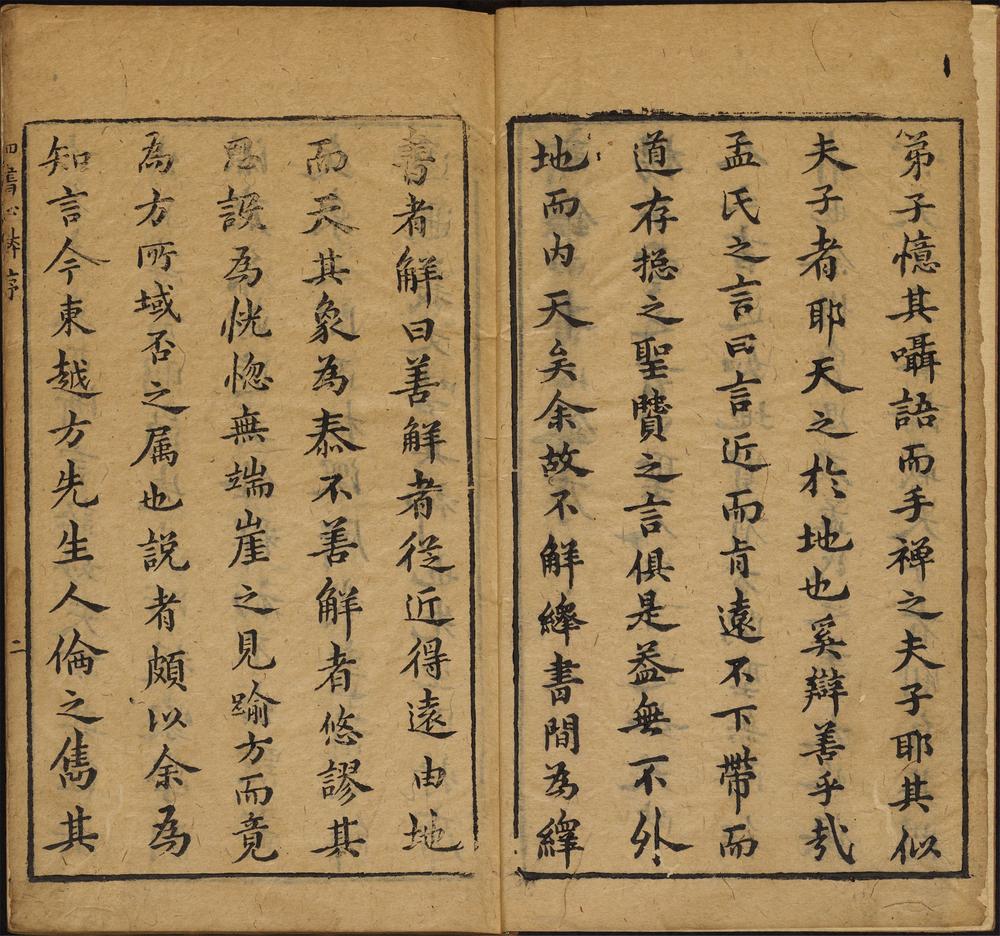 弟子憶其囁語而手禪之夫子耶其似
夫子者耶天之於地也奚辯善乎㢤
孟氏之言曰言近而肯遠不下帶而
道存揔之聖賢之言俱是葢無不外
地而内天矣余故不解繹書間為繹
書者觧曰善觧者從近得遠由地
而天其象為泰不善觧者悠謬其
設為恍惚無端崖之見踰方而竟
為方所域否之属也説者頗以余為
知言今東越方先生人倫之雋其
四書 序
二